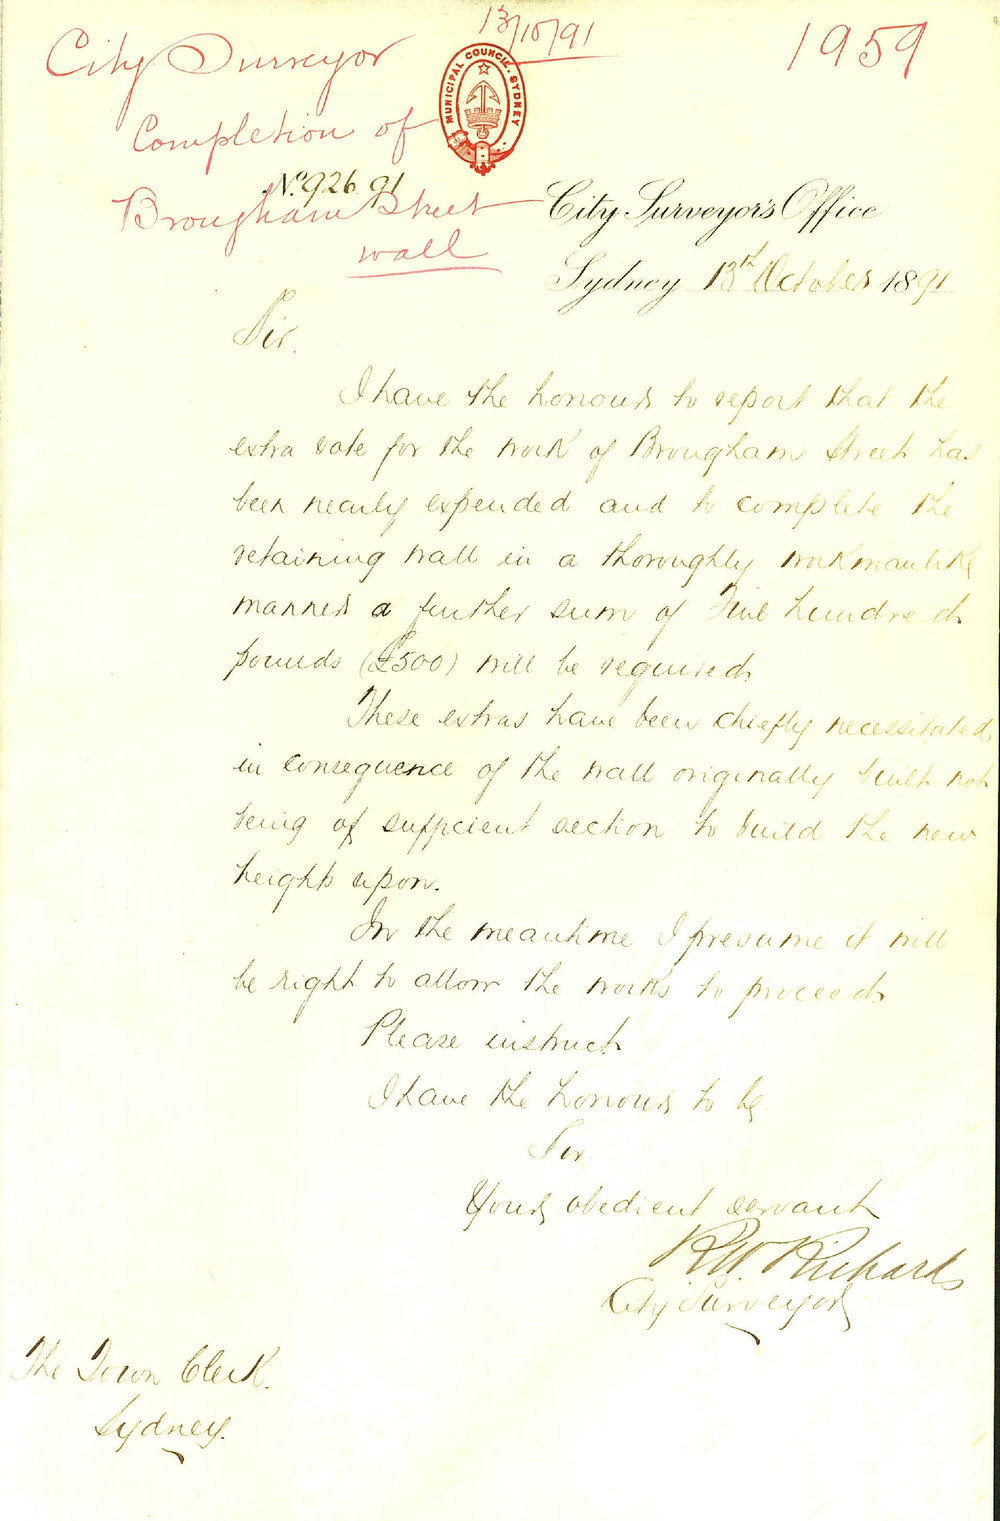 13/10/91
1959
City Surveyor
Completion of
Brougham Street
wall
MUNICIPAL COUNCIL. SYDNEY.
No. 926.91
City Surveyor's Office
Sydney 13th October 1891
Sir.
I have the honour to report that the
extra vote for the work of Brougham Street has
been nearly expended and to complete the
retaining wall in a thoroughly workmanlike
manner a further sum of Five hundred
pounds (£500) will be required.
These extras have been chiefly necessitated
in consequence of the wall originally built not
being of sufficient section to build the new
height upon.
In the meantime I presume it will
be right to allow the works to proceed
Please instruct
I have the honour to be
Sir
Your obedient servant
R W. Richards
City Surveyor
The Town Clerk.
Sydney.